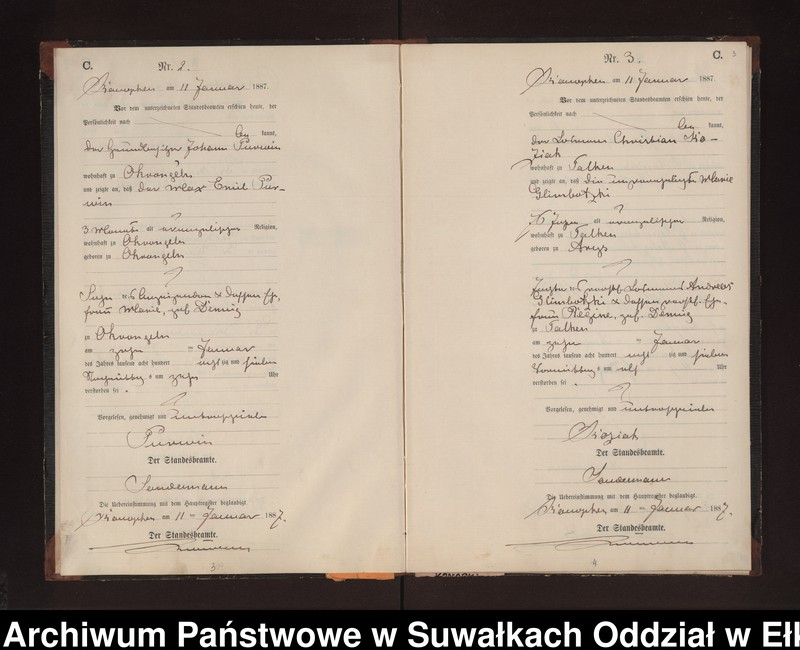 C.
Nr. 2.
am 11 Januar 1887.
Vor dem unterzeichneten Standesbeamten erschien heute, der
Persönlichkeit nach
be kannt,
der Grundbesitzer Johann Purwin
wohnhaft zu
und zeigte an, daß der Max Emil Pur-
win
3 Monate alt evangelischer Religion,
wohnhaft zu
geboren zu
Sohn des Anzeigenden & dessen Ehe-
frau Marie, geb.
zu
am zehn ten Januar
des Jahres tausend acht hundert achtzig und sieben
Vormittags um zehn Uhr
verstorben sei.
Vorgelesen, genehmigt und unterschrieben
Purwin
Der Standesbeamte.
Sandermann
Die Uebereinstimmung mit dem Hauptregister beglaubigt.
am 11 ten Januar 1887.
Der Standesbeamte.
3
Nr. 3.
C.
3
am 11 Januar 1887
Vor dem unterzeichneten Standesbeamten erschien heute, der
Persönlichkeit nach
be kannt,
der Losmann Christian Ko-
ziak
wohnhaft zu Talken
und zeigte an, daß die unverehelichte Marie
Glinbotzki
alt evangelischer Religion,
wohnhaft zu Talken
geboren zu Arys
Tochter des verstb. Losmanns Andreas
Glinbotzki & dessen verstb. Ehe-
frau Regine, geb.
zu Talken
am zehn ten Januar
des Jahres tausend acht hundert achtzig und sieben
Vormittags um elf Uhr
verstorben sei.
Vorgelesen, genehmigt und unterschrieben
Koziak
Der Standesbeamte.
Sandermann
Die Uebereinstimmung mit dem Hauptregister beglaubigt.
am 11 ten Januar 1887.
Der Standesbeamte.
4
Archiwum Państwowe w Suwałkach Oddział w Ełk